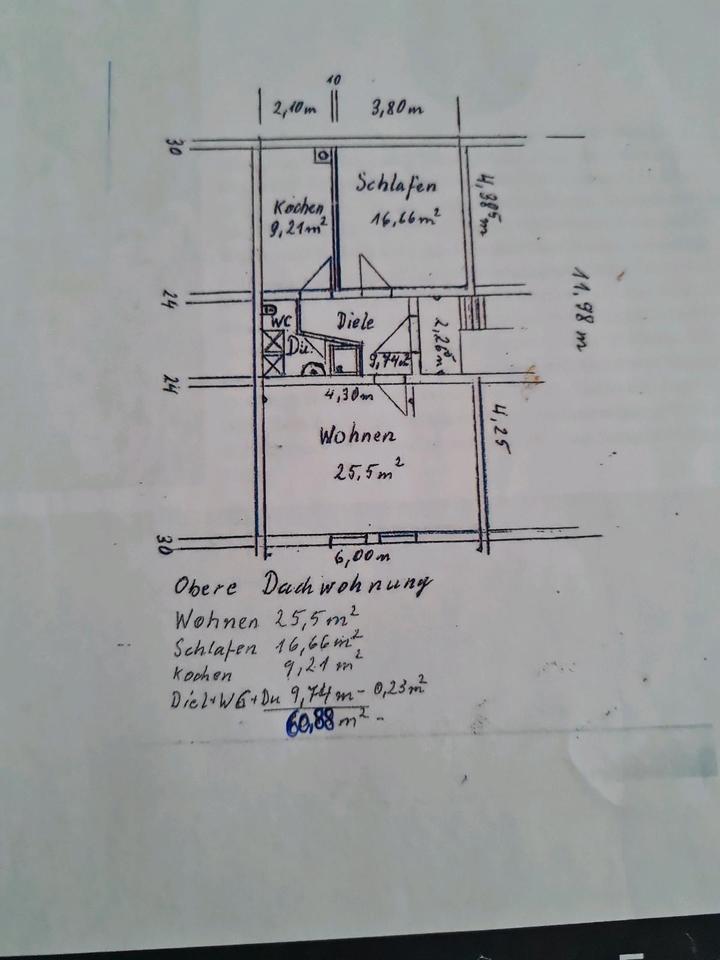 10
2,10m 3,80m
30
Schlafen
16,66m²
4,385m
Kochen
9,21m²
11,98 m
24
WC
Diele
Du.
9,74m²
2,26⁵m
24
4,30m
4,25
Wohnen
25,5m²
30
6,00m
Obere Dachwohnung
Wohnen 25,5m²
Schlafen 16,66m²
Kochen 9,21m²
Diel+WG+Du 9,74m - 0,23m²
60,88m² -